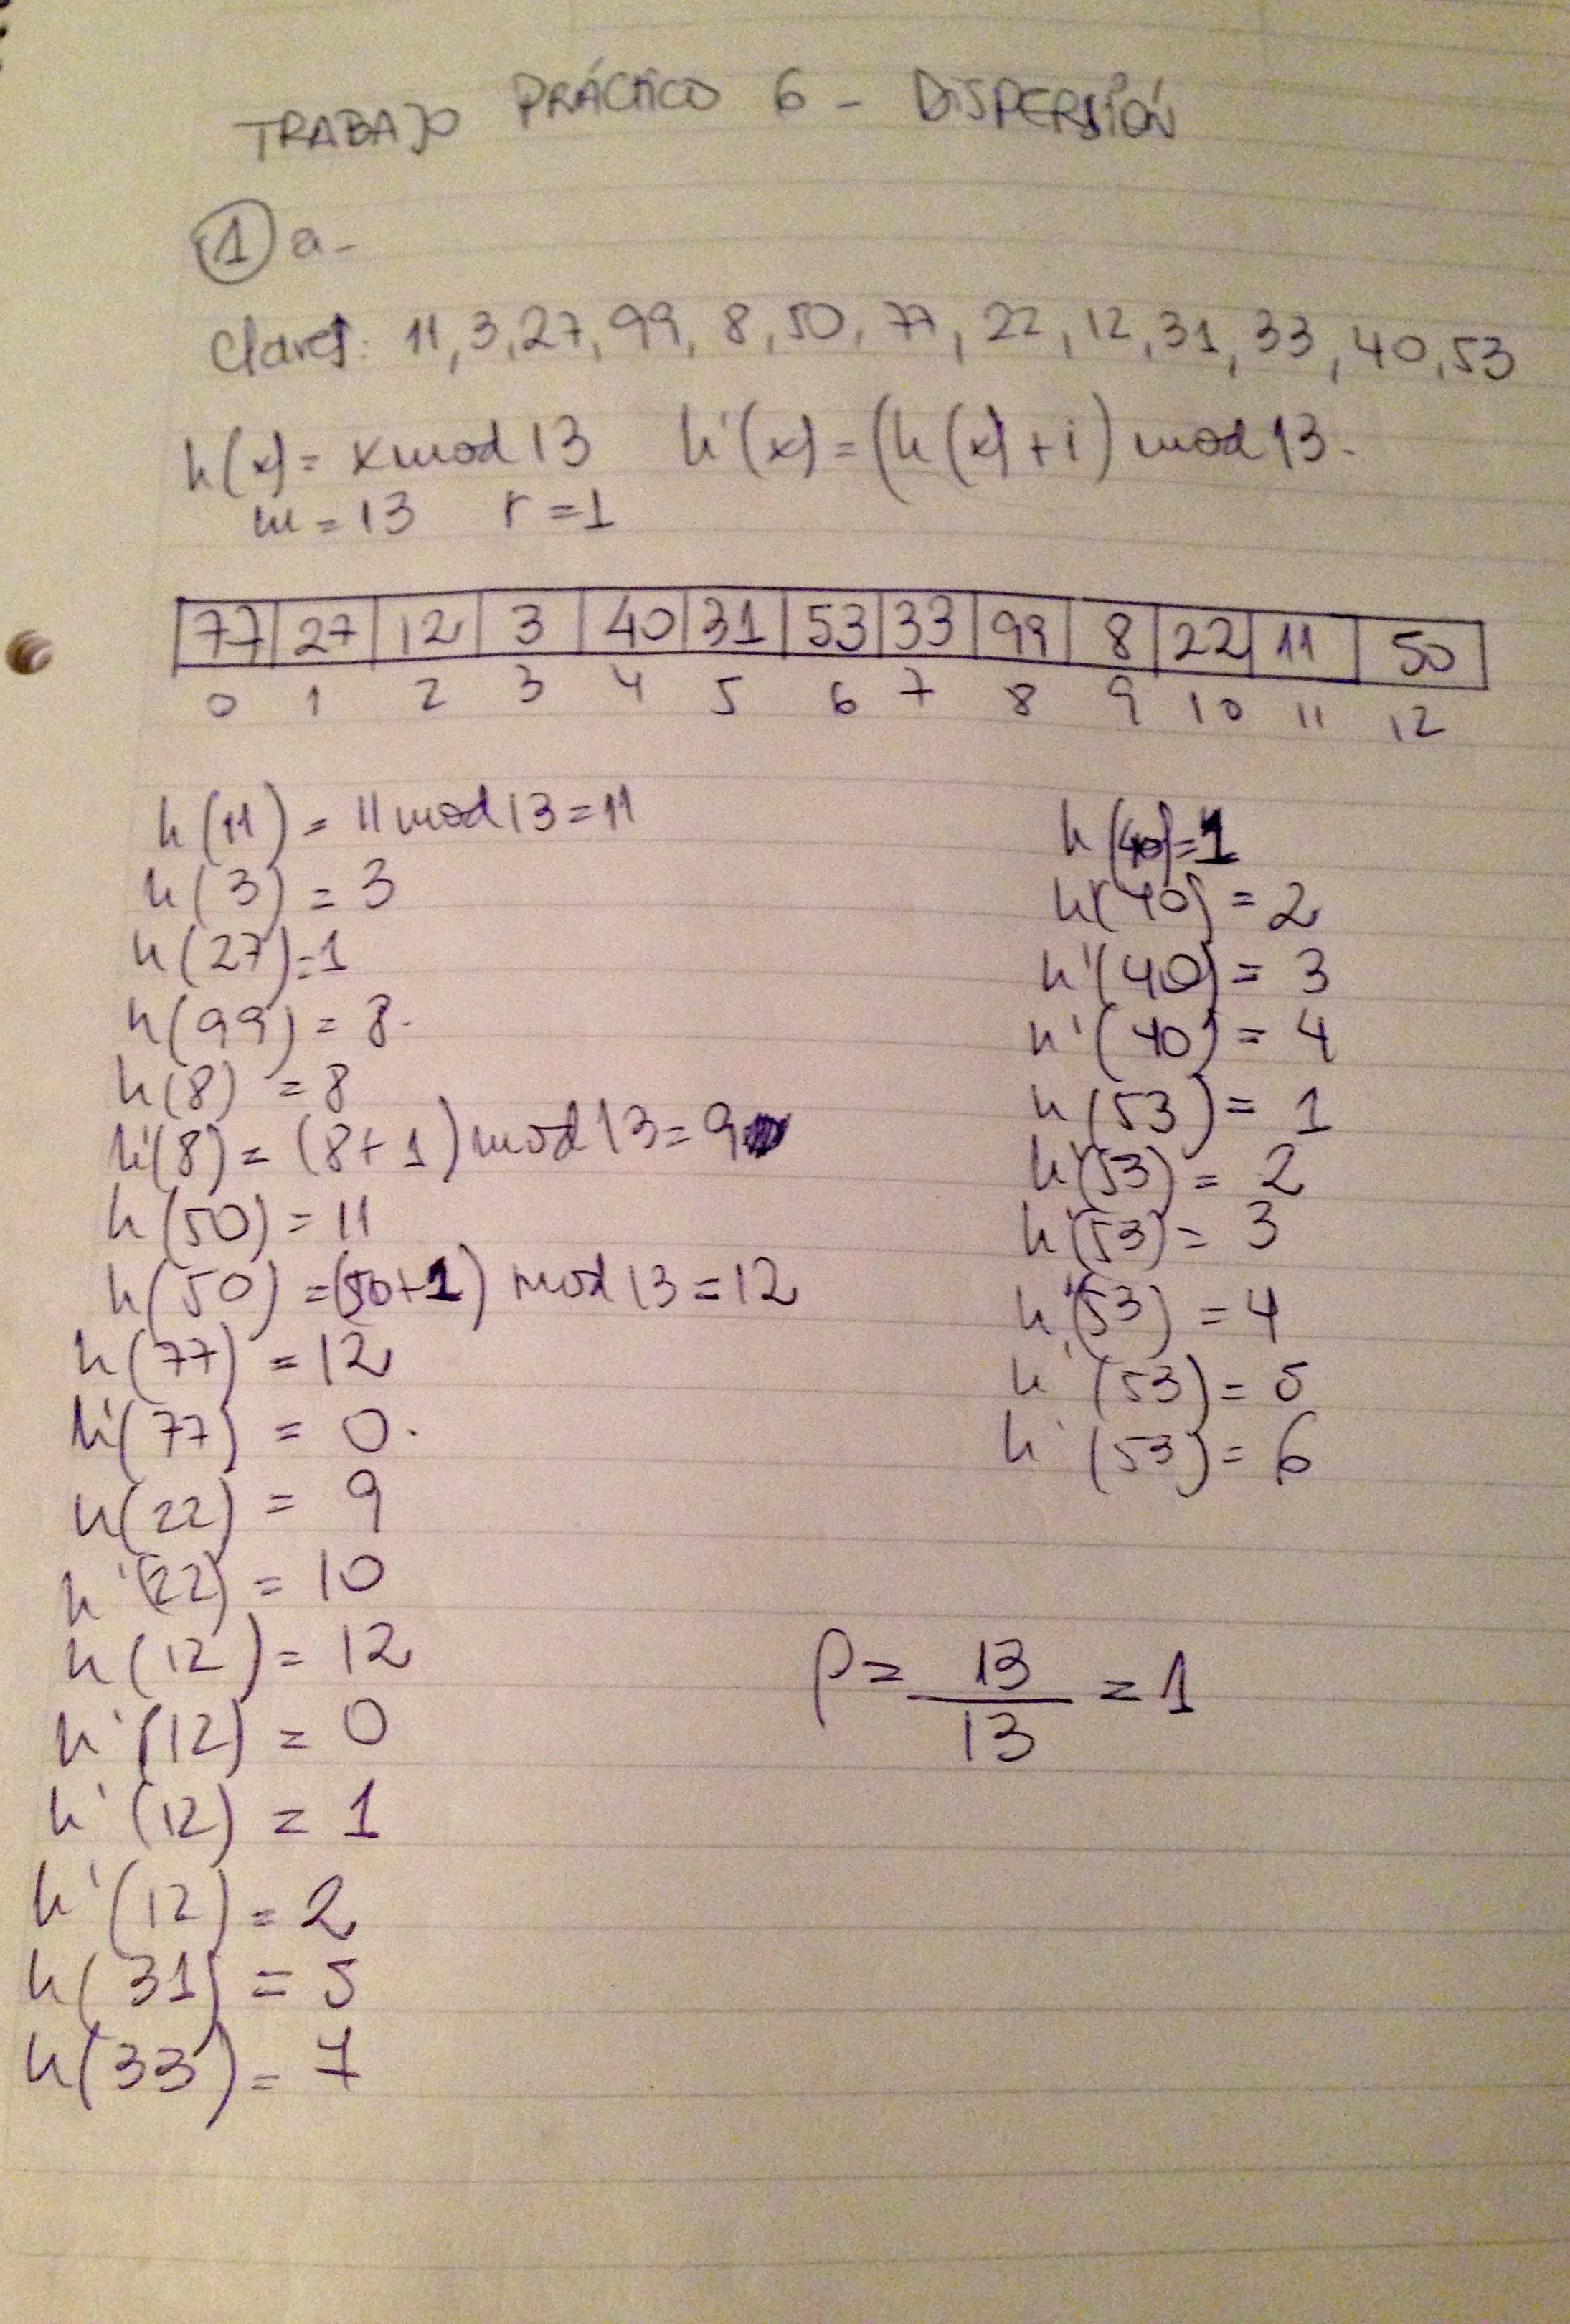 TRABAJO PRÁCTICO 6 - DISPERSIÓN
① a-
Claves: 11, 3, 27, 99, 8, 50, 77, 22, 12, 31, 33, 40, 53
h(x) = x mod 13 h'(x) = (h(x) + i) mod 13.
m = 13 r = 1
77 27 12 3 40 31 53 33 99 8 22 11 50
0 1 2 3 4 5 6 7 8 9 10 11 12
h(11) = 11 mod 13 = 11
h(3) = 3
h(27) = 1
h(99) = 8.
h(8) = 8
h'(8) = (8 + 1) mod 13 = 9
h(50) = 11
h(50) = (50+1) mod 13 = 12
h(77) = 12
h'(77) = 0.
h(22) = 9
h'(22) = 10
h(12) = 12
h'(12) = 0
h'(12) = 1
h'(12) = 2
h(31) = 5
h(33) = 7
h(40) = 1
h'(40) = 2
h'(40) = 3
h'(40) = 4
h(53) = 1
h'(53) = 2
h'(53) = 3
h'(53) = 4
h'(53) = 5
h'(53) = 6
ρ = 13/13 = 1